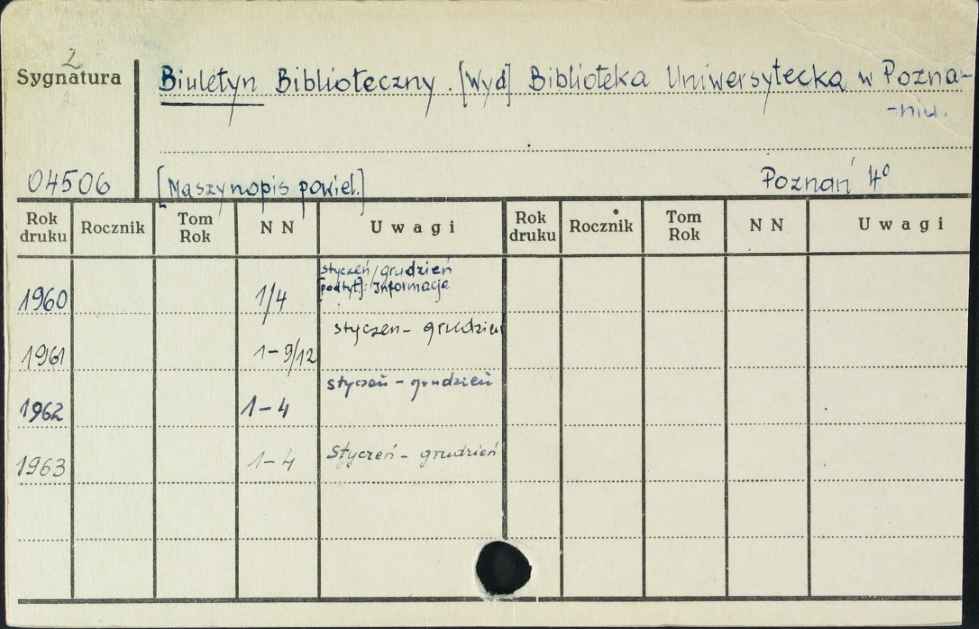 2
Sygnatura
Biuletyn Biblioteczny. [Wyd] Biblioteka Uniwersytecka w Pozna-
-niu.
04506 [Maszynopis powiel.] Poznań 4°
Rok druku Rocznik Tom Rok N N Uwagi Rok druku Rocznik Tom Rok N N Uwagi
1960 1/4 styczeń/grudzień
[podtyt]: Informacje
1961 1-9/12 styczen- grudzień
1962 1-4 styczeń - grudzień
1963 1-4 Styczeń - grudzień